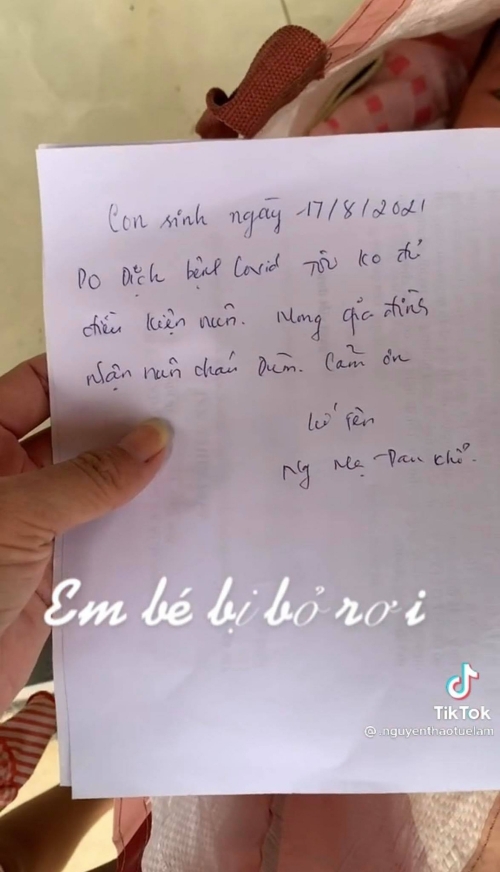 Con sinh ngày 17/8/2021
Do Dịch bệnh Covid Tôi ko đủ
điều kiện nuôi. Mong gia đình
nhận nuôi cháu Dùm. Cảm ơn
ký tên
Ng Mẹ Đau khổ.
Em bé bị bỏ rơi
TikTok
@.nguyenthaotuelam